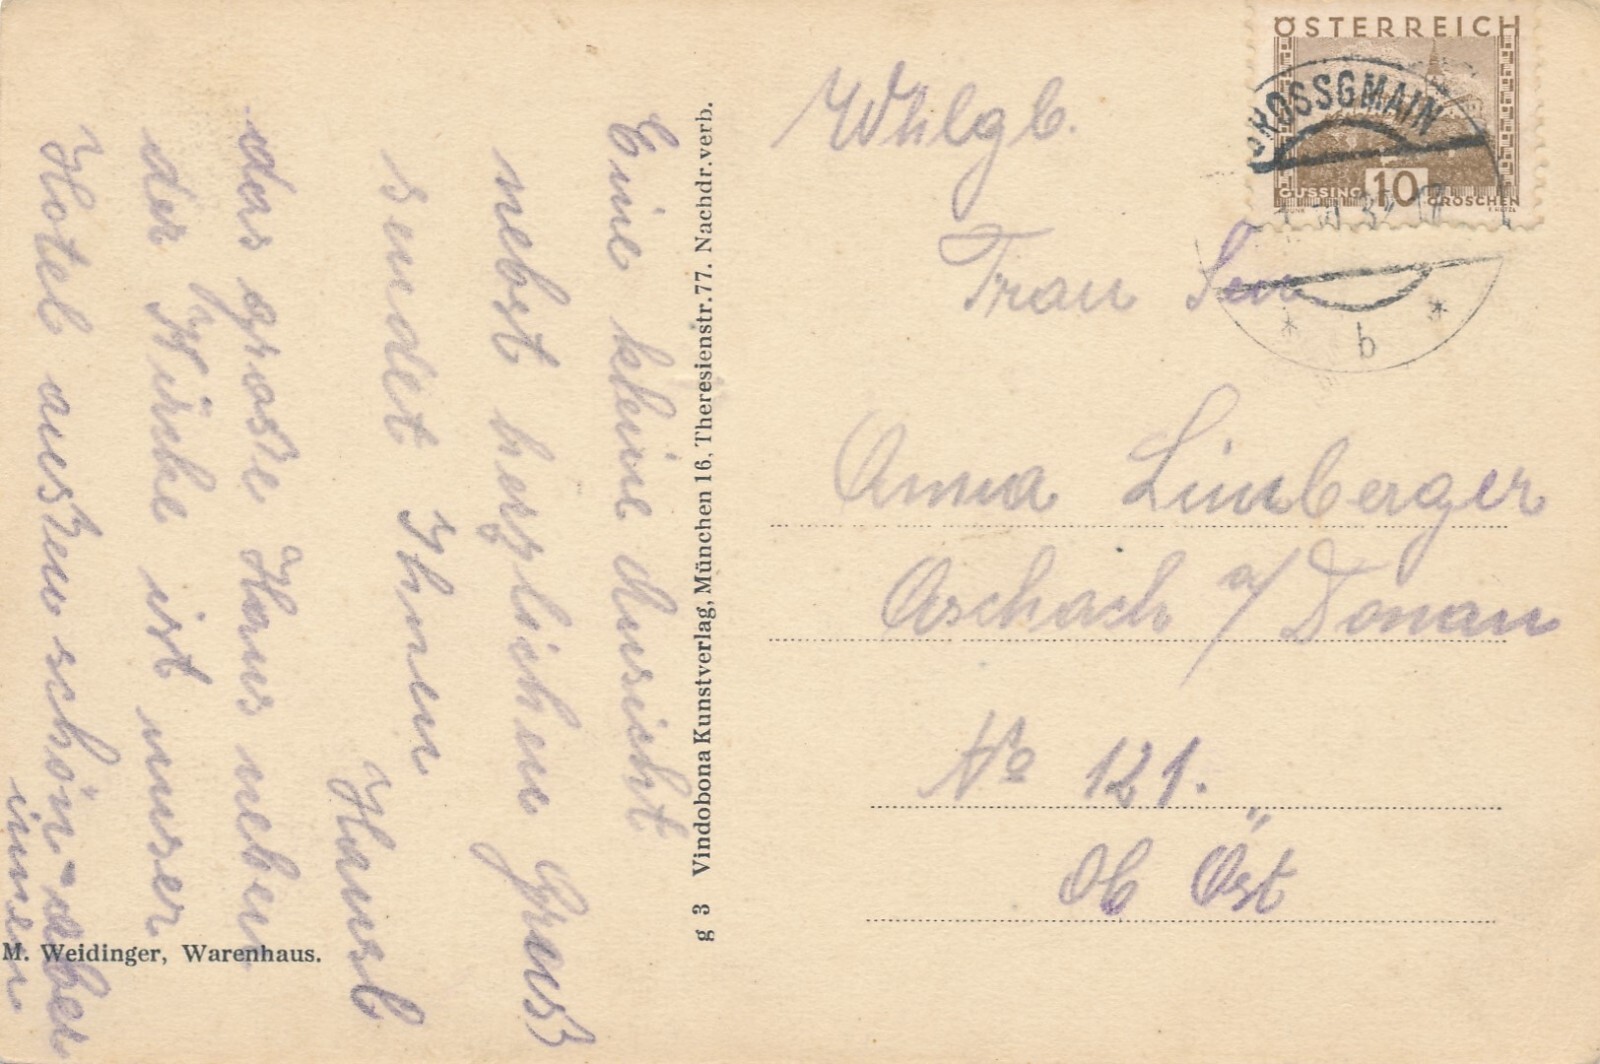 Eine kleine Ansicht
nebst herzlichen Gruss
sendet Ihnen
Hansl
das grosse Haus neben
der Kirche ist unser
Hotel aussen schön - aber
innen
M. Weidinger, Warenhaus.
g 3 Vindobona Kunstverlag, München 16, Theresienstr. 77. Nachdr. verb.
ÖSTERREICH
GÜSSING 10 GROSCHEN
GROSSGMAIN
* b *
Whlgb.
Frau
Anna Limberger
Aschach a/Donau
No 121.
Ob Öst